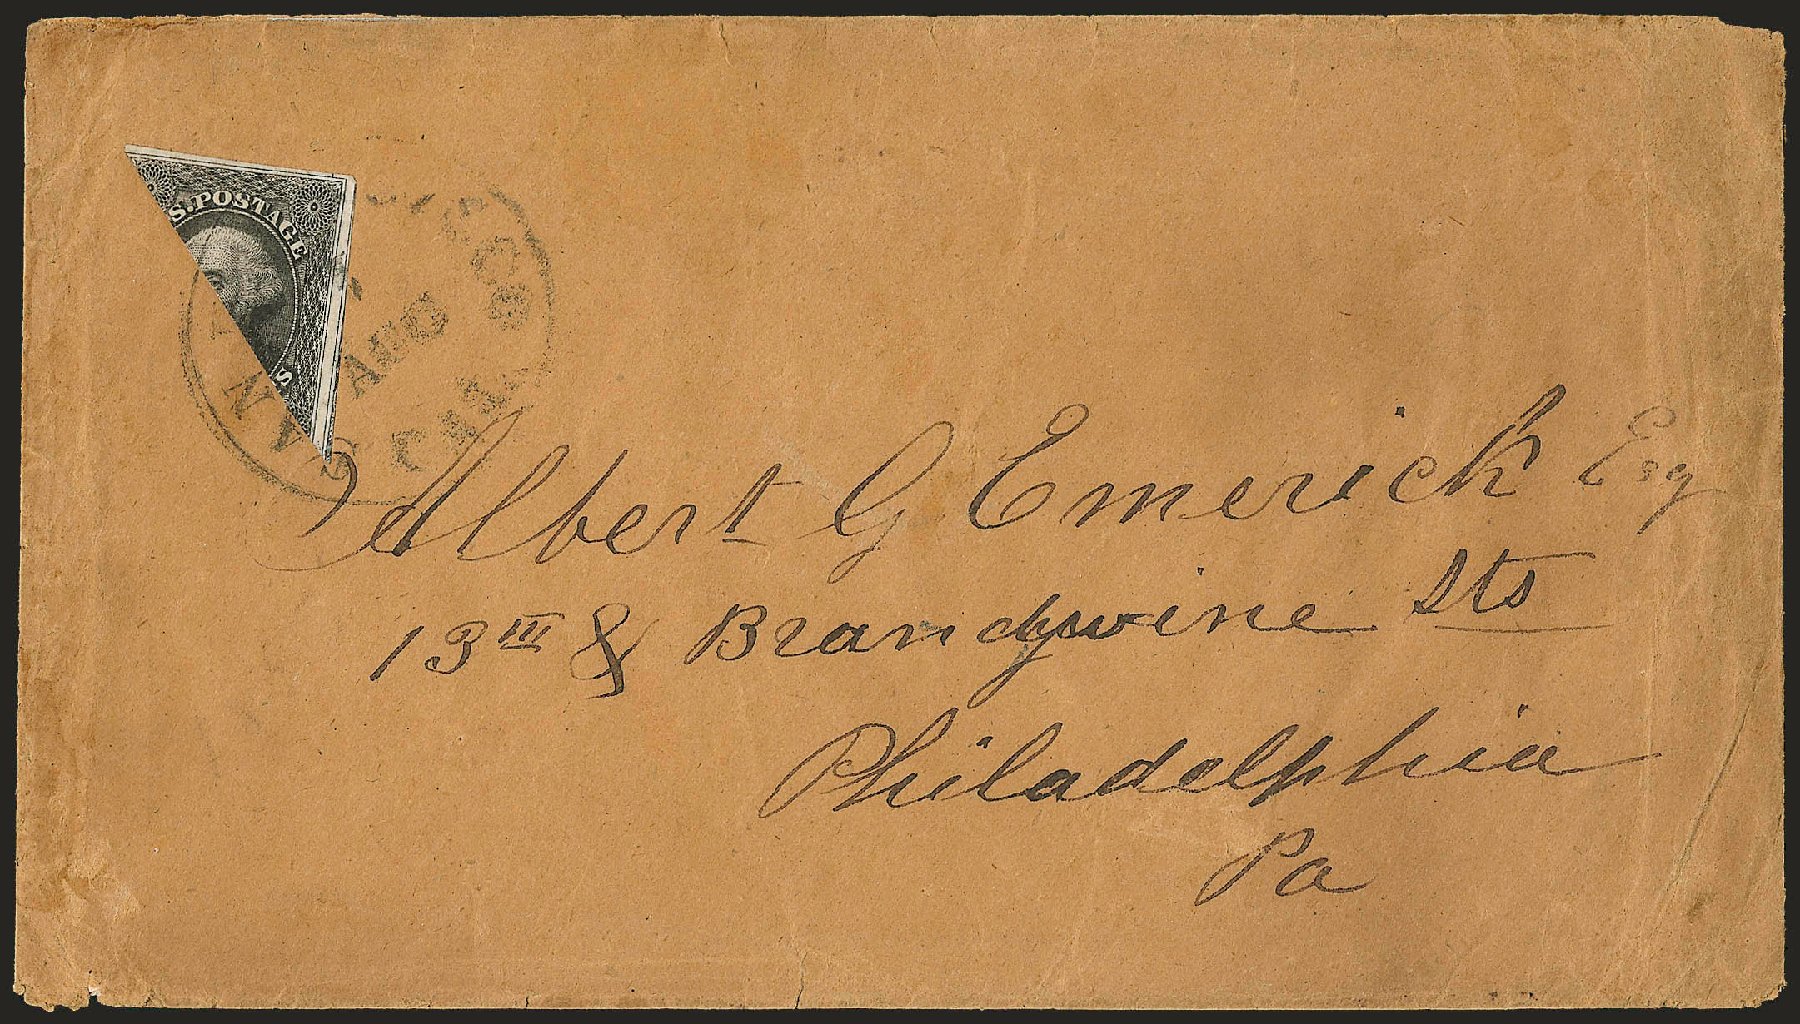 S. POSTAGE
S
SAN
AUG
Albert G Emerick Esq
13III & Brandywine Sts
Philadelphia
Pa